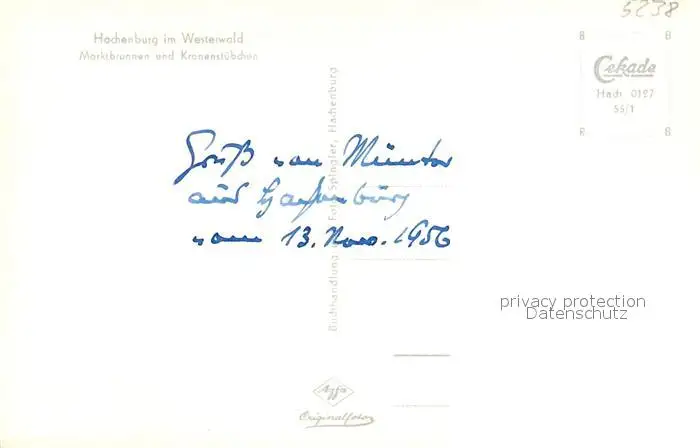 5238
Hachenburg im Westerwald
Marktbrunnen und Kronenstübchen
Cekade
Hach 0197
55/1
Buchhandlung Foto Spingler, Hachenburg
Gruß von Müntor
aus Hachenburg
vom 13. Nov. 1956
privacy protection
Datenschutz
Agfa
Originalfoto